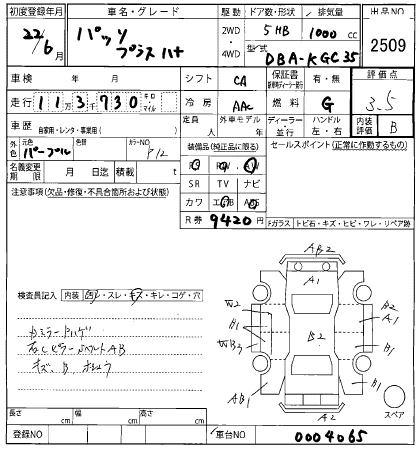 初度登録年月 車名・グレード 駆動 ドア数・形状 排気量 出品NO
22/6月 パッソ プラスハナ 2WD・4WD 5HB 1000cc 2509
型式 DBA-KGC35
車検 年 月 シフト CA 保証書 有・無 評価点
走行 113千730 キロ・マイル 冷房 AAC 燃料 G 3.5
車歴 自家用・レンタ・事業用( ) 定員 人 外車モデル 年 ディーラー・並行 ハンドル 左・右 内装評価 B
外色 元色 パープル 色替 カラーNO P12 装備品(純正品に限る) セールスポイント(正常に作動するもの)
名義変更期限 月 日迄 積載 t
SR TV ナビ
注意事項(欠品・修復・不具合箇所および状態)
カワ エアB ABS
R券 9420円
Fガラス トビ石・キズ・ヒビ・ワレ・リペア跡
AB2
A1
検査員記入 内装 スレ・キズ・キレ・コゲ・穴
W2 A2
B1 A1
B2
WB3 B1
AB1 B1
A2
スペア
長さ cm 幅 cm 高さ cm
登録NO 車台NO 0004065